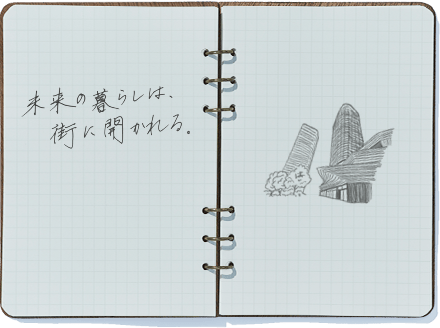 未来の暮らしは、
街に開かれる。